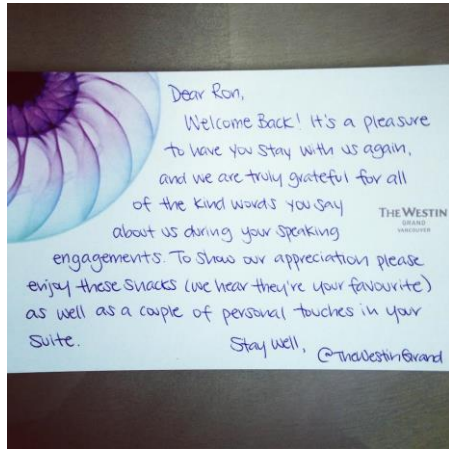 Dear Ron,
Welcome Back! It's a pleasure
to have you stay with us again,
and we are truly grateful for all
of the kind words you say
about us during your speaking
engagements. To show our appreciation please
enjoy these snacks (we hear they're your favourite)
as well as a couple of personal touches in your
suite.
Stay Well,
@TheWestinGrand
THE WESTIN
GRAND
VANCOUVER